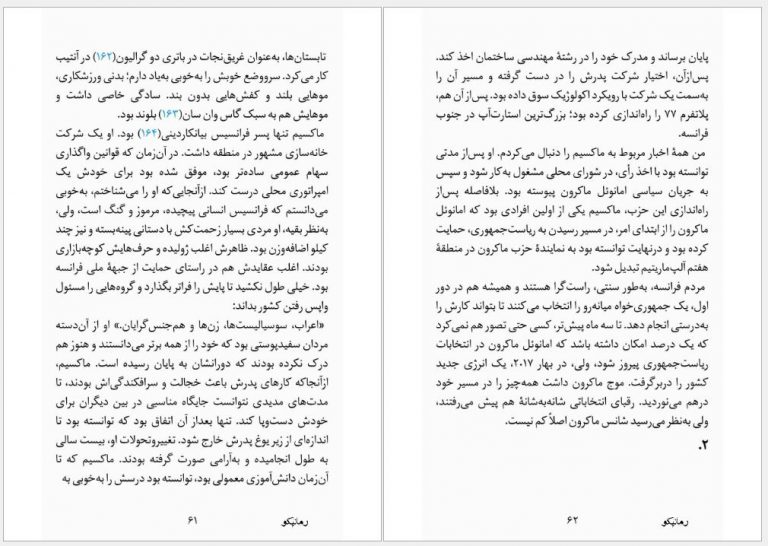 تابستان‌ها، به‌عنوان غریق‌نجات در باتری دو گرالیون(۱۶۲) در آنتیب
کار می‌کرد. سرووضع خوبش را به‌خوبی به‌یاد دارم؛ بدنی ورزشکاری،
موهایی بلند و کفش‌هایی بدون بند. سادگی خاصی داشت و
موهایش هم به سبک گاس وان سان(۱۶۳) بلوند بود.
ماکسیم تنها پسر فرانسیس بیانکاردینی(۱۶۴) بود. او یک شرکت
خانه‌سازی مشهور در منطقه داشت. در آن‌زمان که قوانین واگذاری
سهام عمومی ساده‌تر بود، موفق شده بود برای خودش یک
امپراتوری محلی درست کند. ازآنجایی‌که او را می‌شناختم، به‌خوبی
می‌دانستم که فرانسیس انسانی پیچیده، مرموز و گنگ است، ولی،
به‌نظر بقیه، او مردی بسیار زحمت‌کش با دستانی پینه‌بسته و نیز چند
کیلو اضافه‌وزن بود. ظاهرش اغلب ژولیده و حرف‌هایش کوچه‌بازاری
بودند. اغلب عقایدش هم در راستای حمایت از جبههٔ ملی فرانسه
بود. خیلی طول نکشید تا پایش را فراتر بگذارد و گروه‌هایی را مسئول
واپس رفتن کشور بداند:
«اعراب، سوسیالیست‌ها، زن‌ها و هم‌جنس‌گرایان.» او از آن‌دسته
مردان سفیدپوستی بود که خود را از همه برتر می‌دانستند و هنوز هم
درک نکرده بودند که دورانشان به پایان رسیده است. ماکسیم،
ازآنجاکه کارهای پدرش باعث خجالت و سرافکندگی‌اش بودند، تا
مدت‌های مدیدی نتوانست جایگاه مناسبی در بین دیگران برای
خودش دست‌وپا کند. تنها بعداز آن اتفاق بود که توانسته بود تا
اندازه‌ای از زیر یوغ پدرش خارج شود. تغییروتحولات او، بیست سالی
به طول انجامیده و به‌آرامی صورت گرفته بودند. ماکسیم که تا
آن‌زمان دانش‌آموزی معمولی بود، توانسته بود درسش را به‌خوبی به
۶۱
رمانیکو
پایان برساند و مدرک خود را در رشتهٔ مهندسی ساختمان اخذ کند.
پس‌ازآن، اختیار شرکت پدرش را در دست گرفته و مسیر آن را
به‌سمت یک شرکت با رویکرد اکولوژیک سوق داده بود. پس‌از آن هم،
پلاتفرم ۷۷ را راه‌اندازی کرده بود؛ بزرگ‌ترین استارت‌آپ در جنوب
فرانسه.
من همهٔ اخبار مربوط به ماکسیم را دنبال می‌کردم. او پس‌از مدتی
توانسته بود با اخذ رأی، در شورای محلی مشغول به‌کار شود و سپس
به جریان سیاسی امانوئل ماکرون پیوسته بود. بلافاصله پس‌از
راه‌اندازی این حزب، ماکسیم یکی از اولین افرادی بود که امانوئل
ماکرون را از ابتدای امر، در مسیر رسیدن به ریاست‌جمهوری، حمایت
کرده بود و درنهایت توانسته بود به نمایندهٔ حزب ماکرون در منطقهٔ
هفتم آلپ‌ماریتیم تبدیل شود.
مردم فرانسه، به‌طور سنتی، راست‌گرا هستند و همیشه هم در دور
اول، یک جمهوری‌خواه میانه‌رو را انتخاب می‌کنند تا بتواند کارش را
به‌درستی انجام دهد. تا سه ماه پیش‌تر، کسی حتی تصور هم نمی‌کرد
که یک درصد امکان داشته باشد که امانوئل ماکرون در انتخابات
ریاست‌جمهوری پیروز شود، ولی، در بهار ۲۰۱۷، یک انرژی جدید
کشور را دربرگرفت. موج ماکرون داشت همه‌چیز را در مسیر خود
درهم می‌نوردید. رقبای انتخاباتی شانه‌به‌شانهٔ هم پیش می‌رفتند،
ولی به‌نظر می‌رسید شانس ماکرون اصلاً کم نیست.
۲.
۶۲
رمانیکو